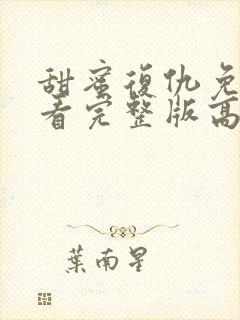 甜蜜復仇免
看完整版高
葉南星